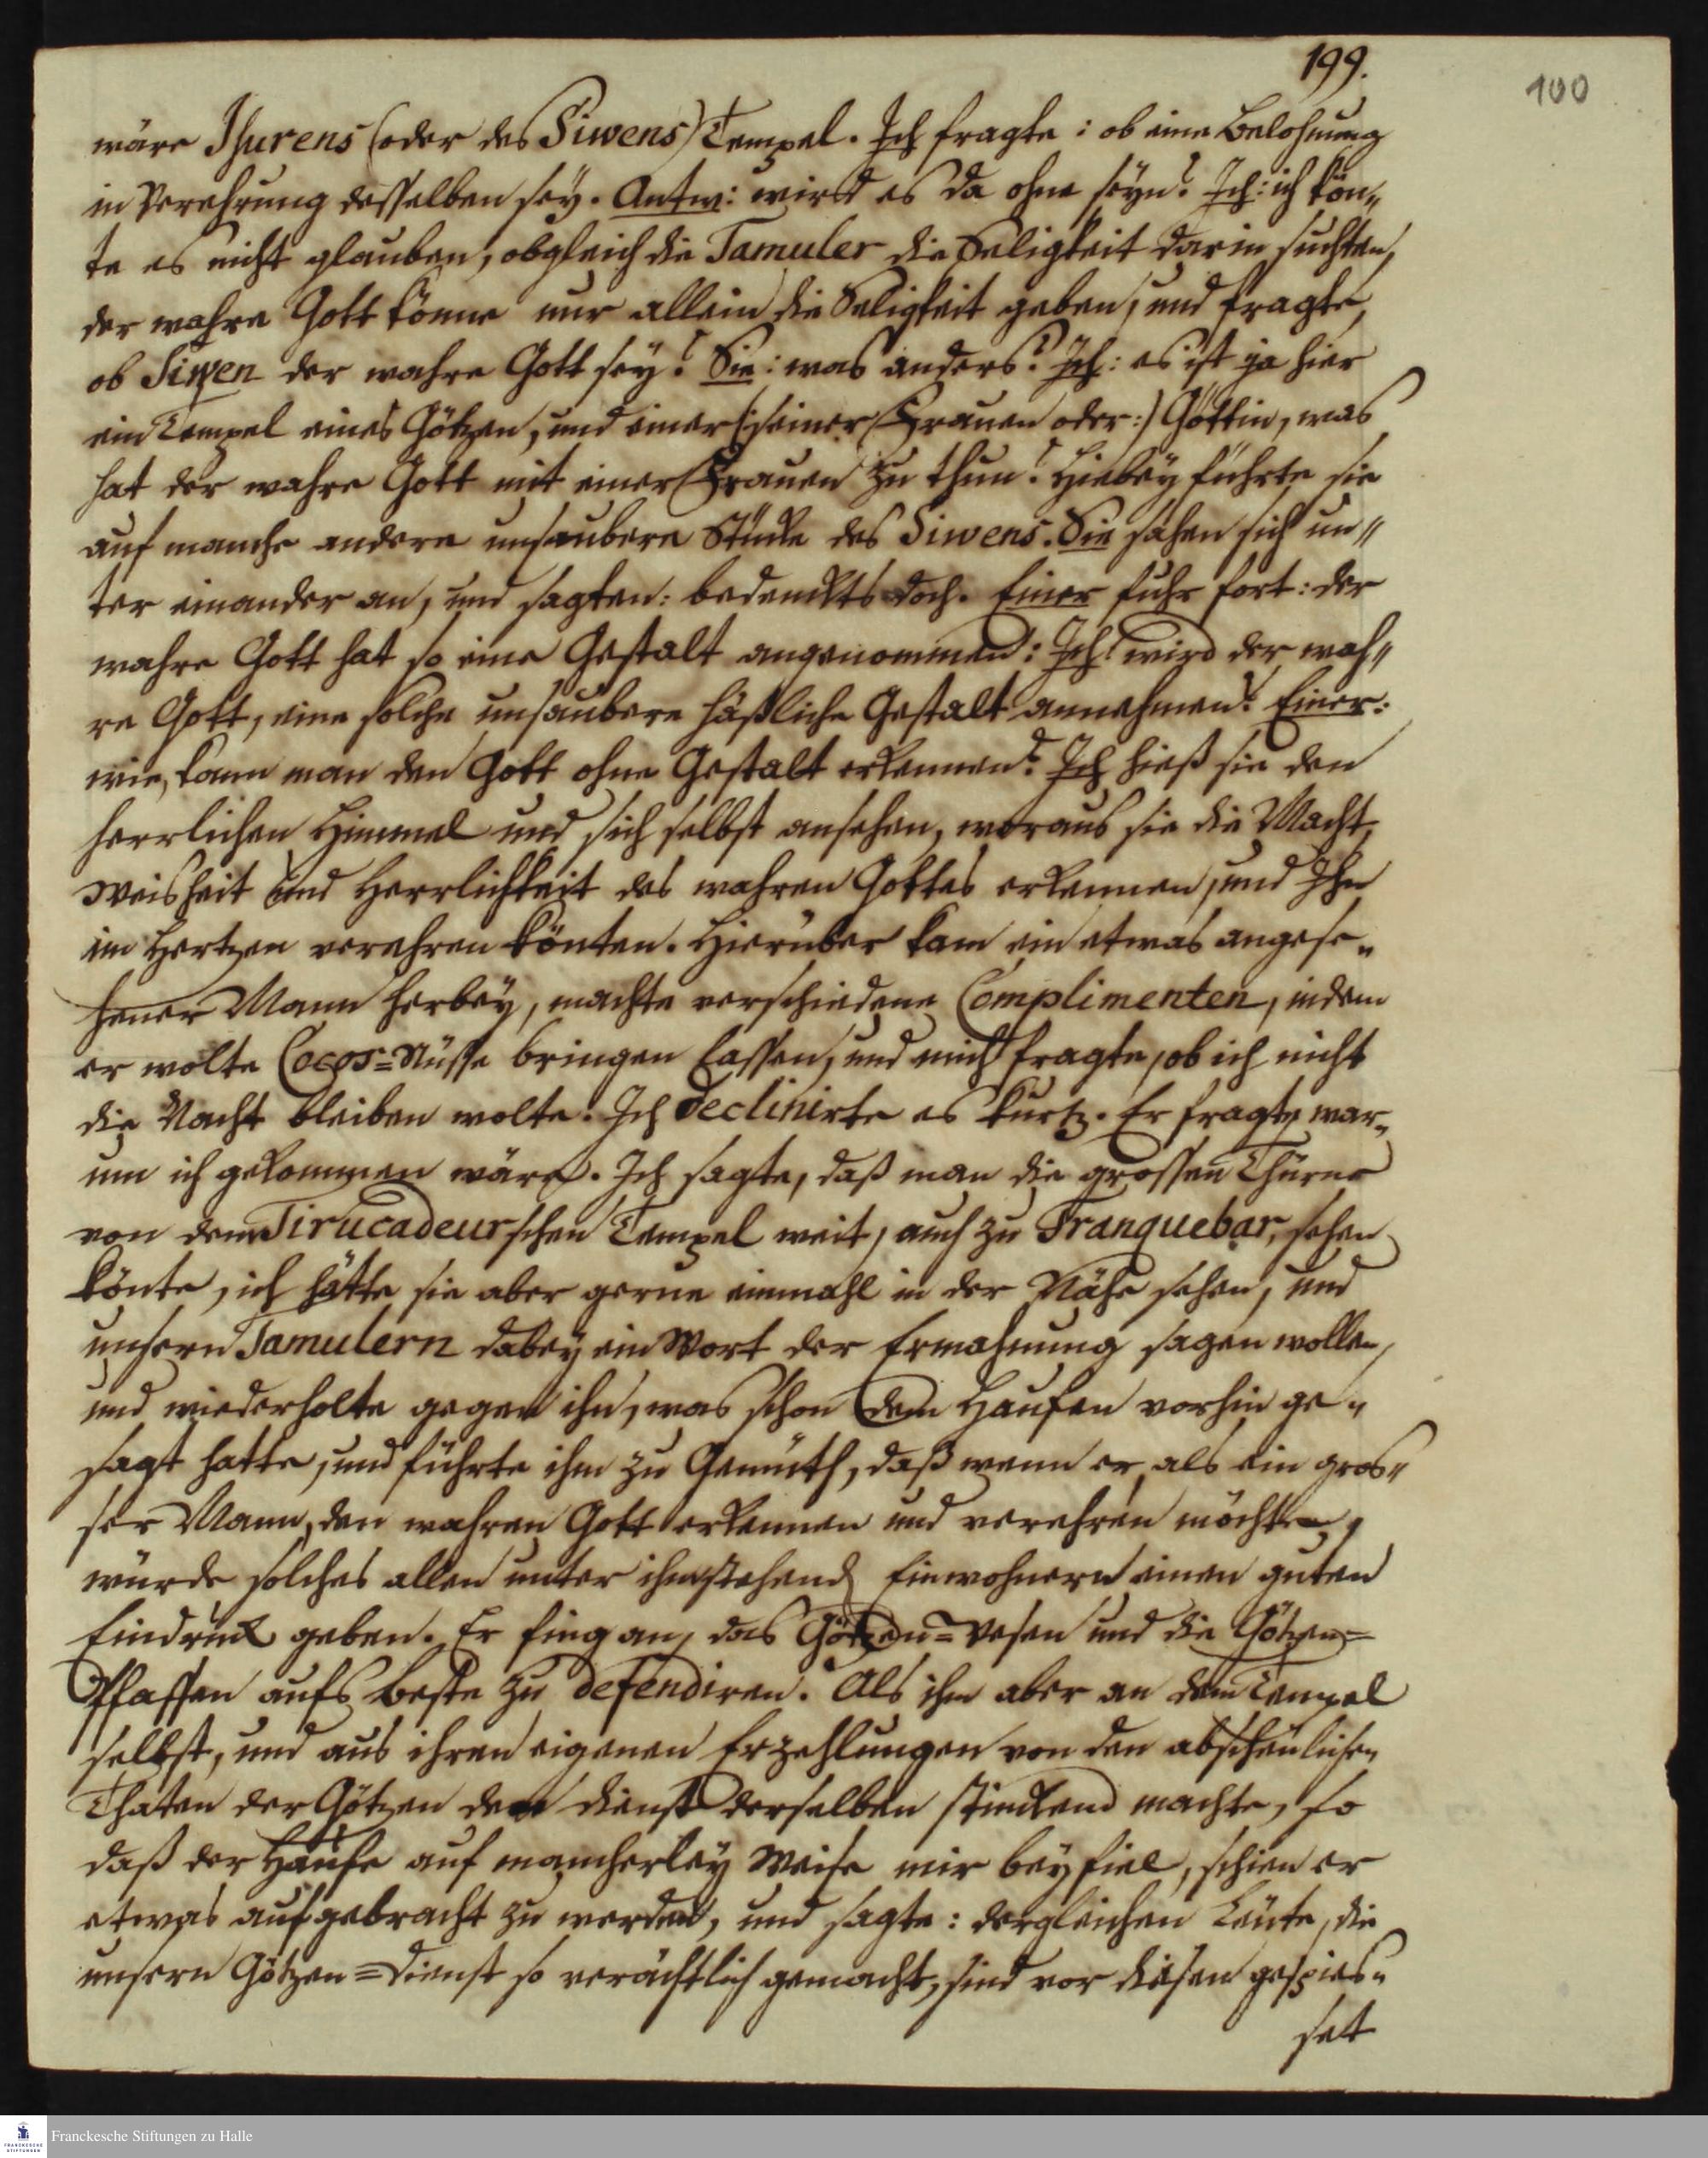 199.
100
wäre Isurens (oder des Siwens) Tempel. Ich fragte: ob eine Belohnung
in Verehrung desselben sey. Antw: wird es da ohne seyn? Ich: ich kön„
te es nicht glauben, obgleich die Tamuler die Seligkeit darin suchten,
der wahre Gott könne nur allein die Seligkeit geben, und fragte,
ob Siwen der wahre Gott sey? Sie: was anders? Ich: es ist ja hier
ein Tempel eines Götzen, und einer (: seiner Frauen oder :) Göttin, was
hat der wahre Gott mit einer Frauen zu thun? Hiebey führte sie
auf manche andere unsaubere Stücke des Siwens. Sie sahen sich un„
ter einander an, und sagten: bedenckts doch. Einer fuhr fort: der
wahre Gott hat so eine Gestalt angenommen: Ich: wird der wah„
re Gott, eine solche unsaubere häßliche Gestalt annehmen? Einer:
wie, kann man den Gott ohne Gestalt erkennen? Ich hieß sie den
herrlichen Himmel und sich selbst ansehen, woraus sie die Macht,
Weisheit und Herrlichkeit des wahren Gottes erkennen, und Ihn
im Hertzen verehren könten. Hierüber kam ein etwas angese„
hener Mann herbey, machte verschiedene Complimenten, indem
er wolte Cocos=Nüsse bringen lassen, und mich fragte, ob ich nicht
die Nacht bleiben wolte. Ich declinirte es kurtz. Er fragte, war„
um ich gekommen wäre. Ich sagte, daß man die grossen Thürne
von dem Tirucadeurschen Tempel weit, auch zu Tranquebar, sehen
könte, ich hätte sie aber gerne einmahl in der Nähe sehen, und
unsern Tamulern dabey ein Wort der Ermahnung sagen wollen,
und wiederholte gegen ihn, was schon dem Haufen vorhin ge„
sagt hatte, und führte ihm zu Gemüth, daß wenn er als ein gros„
ser Mann, den wahren Gott erkennen und verehren möchte,
würde solches allen unter ihm stehend Einwohnern einen guten
Eindruck geben. Er fing an, das Götzen=Wesen und die Götzen=
Pfaffen aufs beste zu defendiren. Als ihm aber an dem Tempel
selbst, und aus ihren eigenen Erzehlungen von den abscheulichen
Thaten der Götzen den Dienst derselben stinckend machte, so
daß der Haufe auf mancherley Weise mir beyfiel, schien er
etwas aufgebracht zu werden, und sagte: dergleichen Leute, die
unsern Götzen=Dienst so verächtlich gemacht, sind vor diesen gespies„
set
Franckesche Stiftungen zu Halle